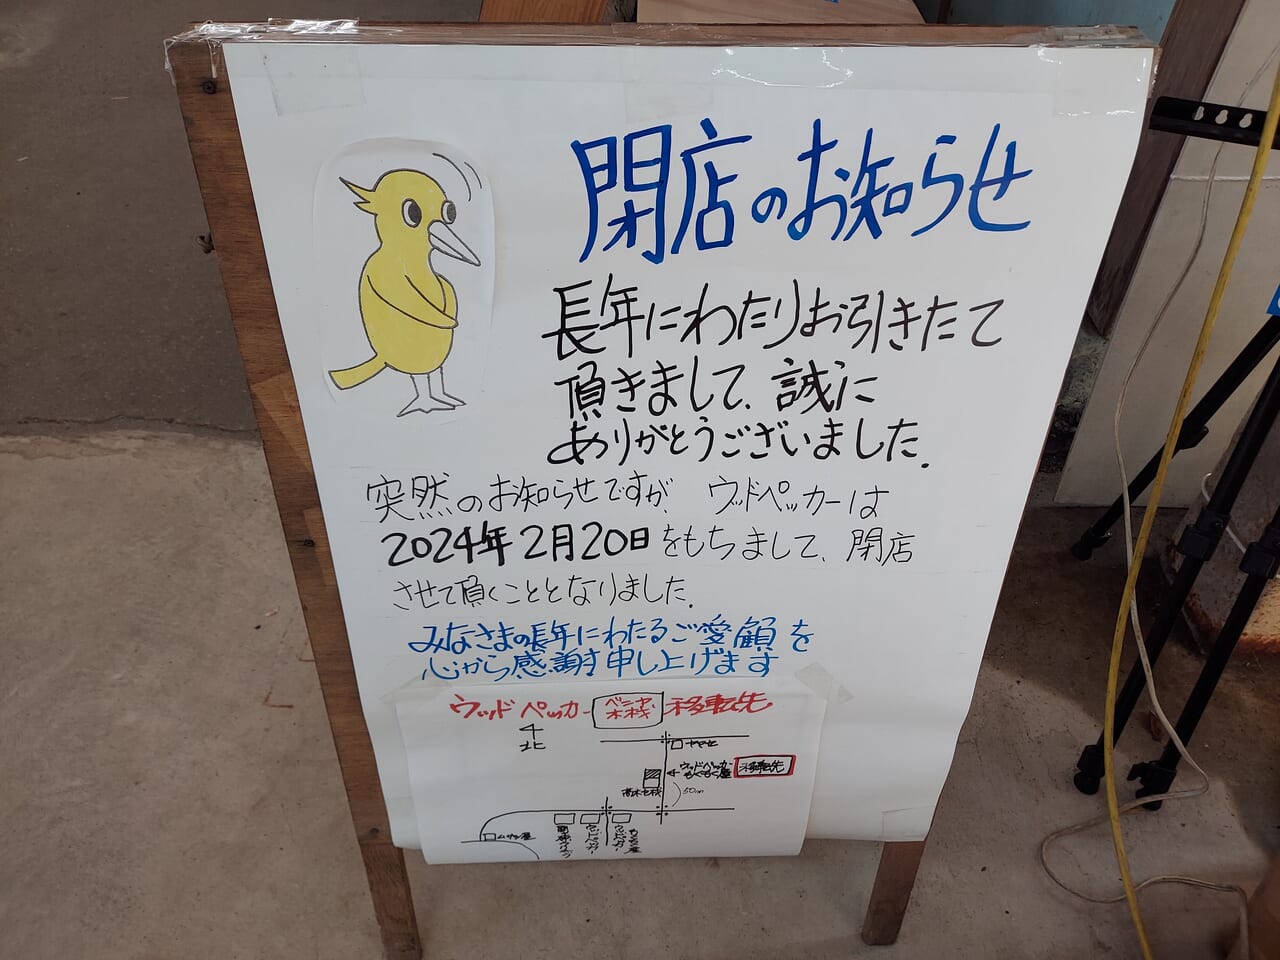 閉店のお知らせ
長年にわたりお引きたて
頂きまして、誠に
ありがとうございました.
突然のお知らせですが、ウッドペッカーは
2024年2月20日をもちまして、閉店
させて頂くこととなりました.
みなさまの長年にわたるご愛顧を
心から感謝申し上げます
ウッドペッカー ベニヤ 木材 移転先
北
ウッドペッカー
もくもく屋
移転先
50m
ウッドペッカー
ウッドペッカー